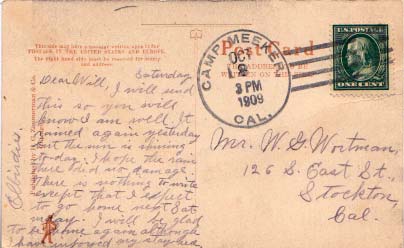 This side may have a message written upon it for
POSTAGE IN THE UNITED STATES AND EUROPE.
The right hand side must be reserved for stamp
and address.
Post Card
CAMP MEEKER
OCT
2
3 PM
1909
CAL.
U.S. POSTAGE
ONE CENT
Saturday
Dear Will,
I will send
this so you will
know I am well. It
rained again yesterday
but the sun is shining
to-day. I hope the rain
here did no damage.
There is nothing to write
except that I expect
to go home next Sat-
I will be glad
to be home again although
have enjoyed my stay here
Mr. W. G. Wortman,
126 S. East St.,
Stockton,
Cal.